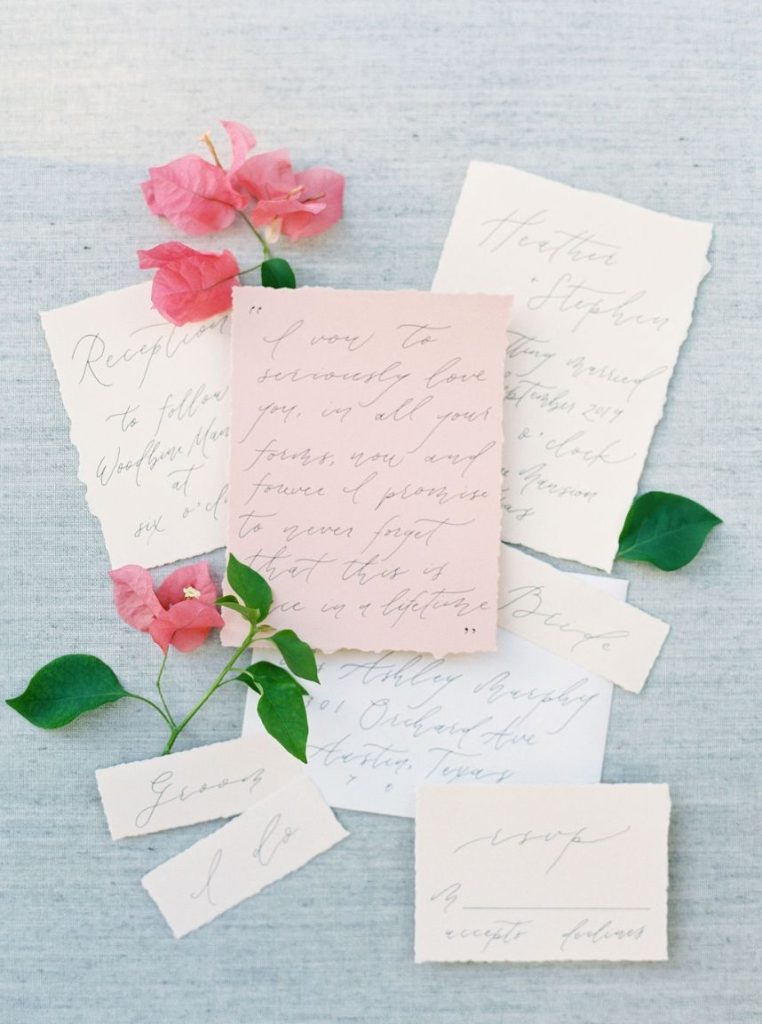 Heather
+ Stephen
getting married
September 2019
o'clock
Mansion
Reception
to follow
Woodbine Man
at
six o'cl
"I vow to
seriously love
you, in all your
forms, now and
forever I promise
to never forget
that this is
once in a lifetime"
Bride
Ashley Murphy
01 Orchard Ave
Austin, Texas
7 0
Groom
I do
rsvp
M
accepts declines